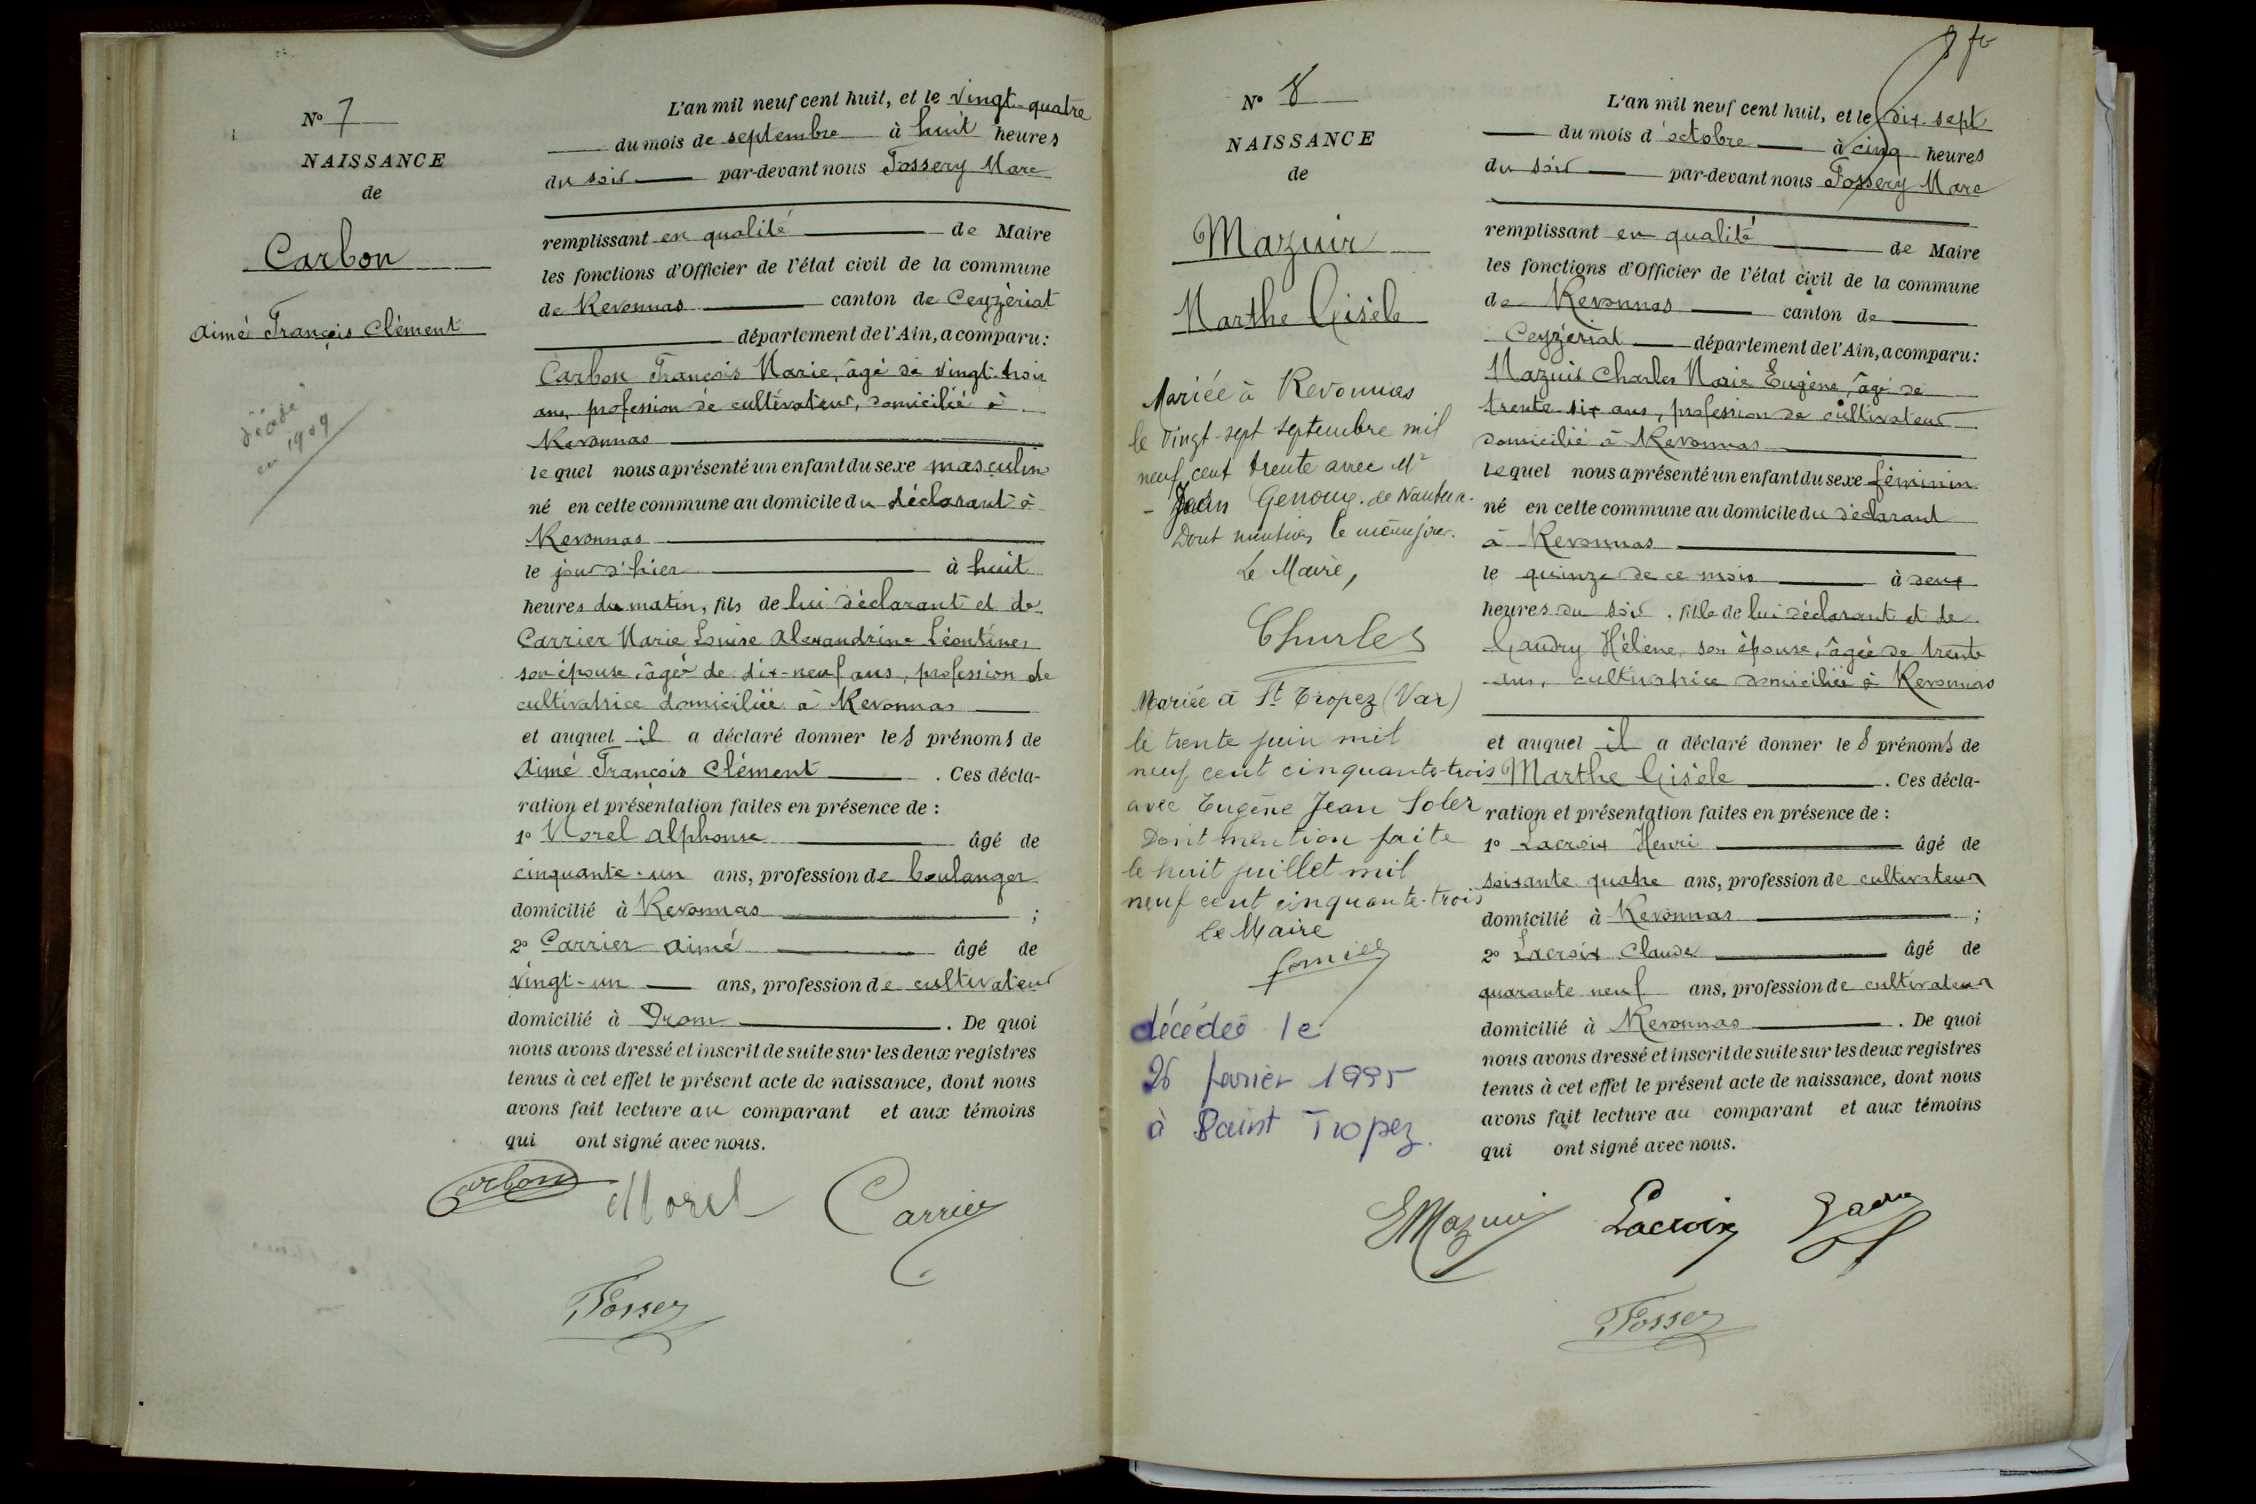 N° 7
NAISSANCE
de
Carbon
Aimé François Clément
décédé
en 1909
L'an mil neuf cent huit, et le vingt-quatre
du mois de septembre à huit heures
du soir par-devant nous Fossery Marc
remplissant en qualité de Maire
les fonctions d'Officier de l'état civil de la commune
de Revonnas canton de Ceyzériat
département de l'Ain, a comparu :
Carbon François Marie, âgé de vingt-trois
ans, profession de cultivateur, domicilié à
Revonnas
lequel nous a présenté un enfant du sexe masculin
né en cette commune au domicile du déclarant à
Revonnas
le jour d'hier à huit
heures du matin, fils de lui déclarant et de
Carrier Marie Louise Alexandrine Léontine,
son épouse, âgée de dix-neuf ans, profession de
cultivatrice domiciliée à Revonnas
et auquel il a déclaré donner les prénoms de
Aimé François Clément . Ces décla-
ration et présentation faites en présence de :
1° Morel Alphonse âgé de
cinquante-un ans, profession de boulanger
domicilié à Revonnas ;
2° Carrier Aimé âgé de
vingt-un ans, profession de cultivateur
domicilié à Drom . De quoi
nous avons dressé et inscrit de suite sur les deux registres
tenus à cet effet le présent acte de naissance, dont nous
avons fait lecture au comparant et aux témoins
qui ont signé avec nous.
Carbon Morel Carrier
Fossery
N° 8
NAISSANCE
de
Mazuir
Marthe Gisèle
Mariée à Revonnas
le vingt-sept septembre mil
neuf cent trente avec Mr
Jean Genoux de Nantua.
Dont mention, le même jour.
Le Maire,
Charles
Mariée à St Tropez (Var)
le trente juin mil
neuf cent cinquante-trois
avec Eugène Jean Soler
Dont mention faite
le huit juillet mil
neuf cent cinquante-trois
le Maire
décédée le
26 février 1995
à Saint Tropez.
L'an mil neuf cent huit, et le dix-sept
du mois d'octobre à cinq heures
du soir par-devant nous Fossery Marc
remplissant en qualité de Maire
les fonctions d'Officier de l'état civil de la commune
de Revonnas canton de
Ceyzériat département de l'Ain, a comparu :
Mazuir Charles Marie Eugène, âgé de
trente-six ans, profession de cultivateur
domicilié à Revonnas
lequel nous a présenté un enfant du sexe féminin
né en cette commune au domicile du déclarant
à Revonnas
le quinze de ce mois à deux
heures du soir, fille de lui déclarant et de
Gaudry Hélène, son épouse, âgée de trente
ans, cultivatrice domiciliée à Revonnas
et auquel il a déclaré donner les prénoms de
Marthe Gisèle . Ces décla-
ration et présentation faites en présence de :
1° Lacroix Henri âgé de
soixante quatre ans, profession de cultivateur
domicilié à Revonnas ;
2° Lacroix Claude âgé de
quarante neuf ans, profession de cultivateur
domicilié à Revonnas . De quoi
nous avons dressé et inscrit de suite sur les deux registres
tenus à cet effet le présent acte de naissance, dont nous
avons fait lecture au comparant et aux témoins
qui ont signé avec nous.
EMazuir Lacroix
Fossery